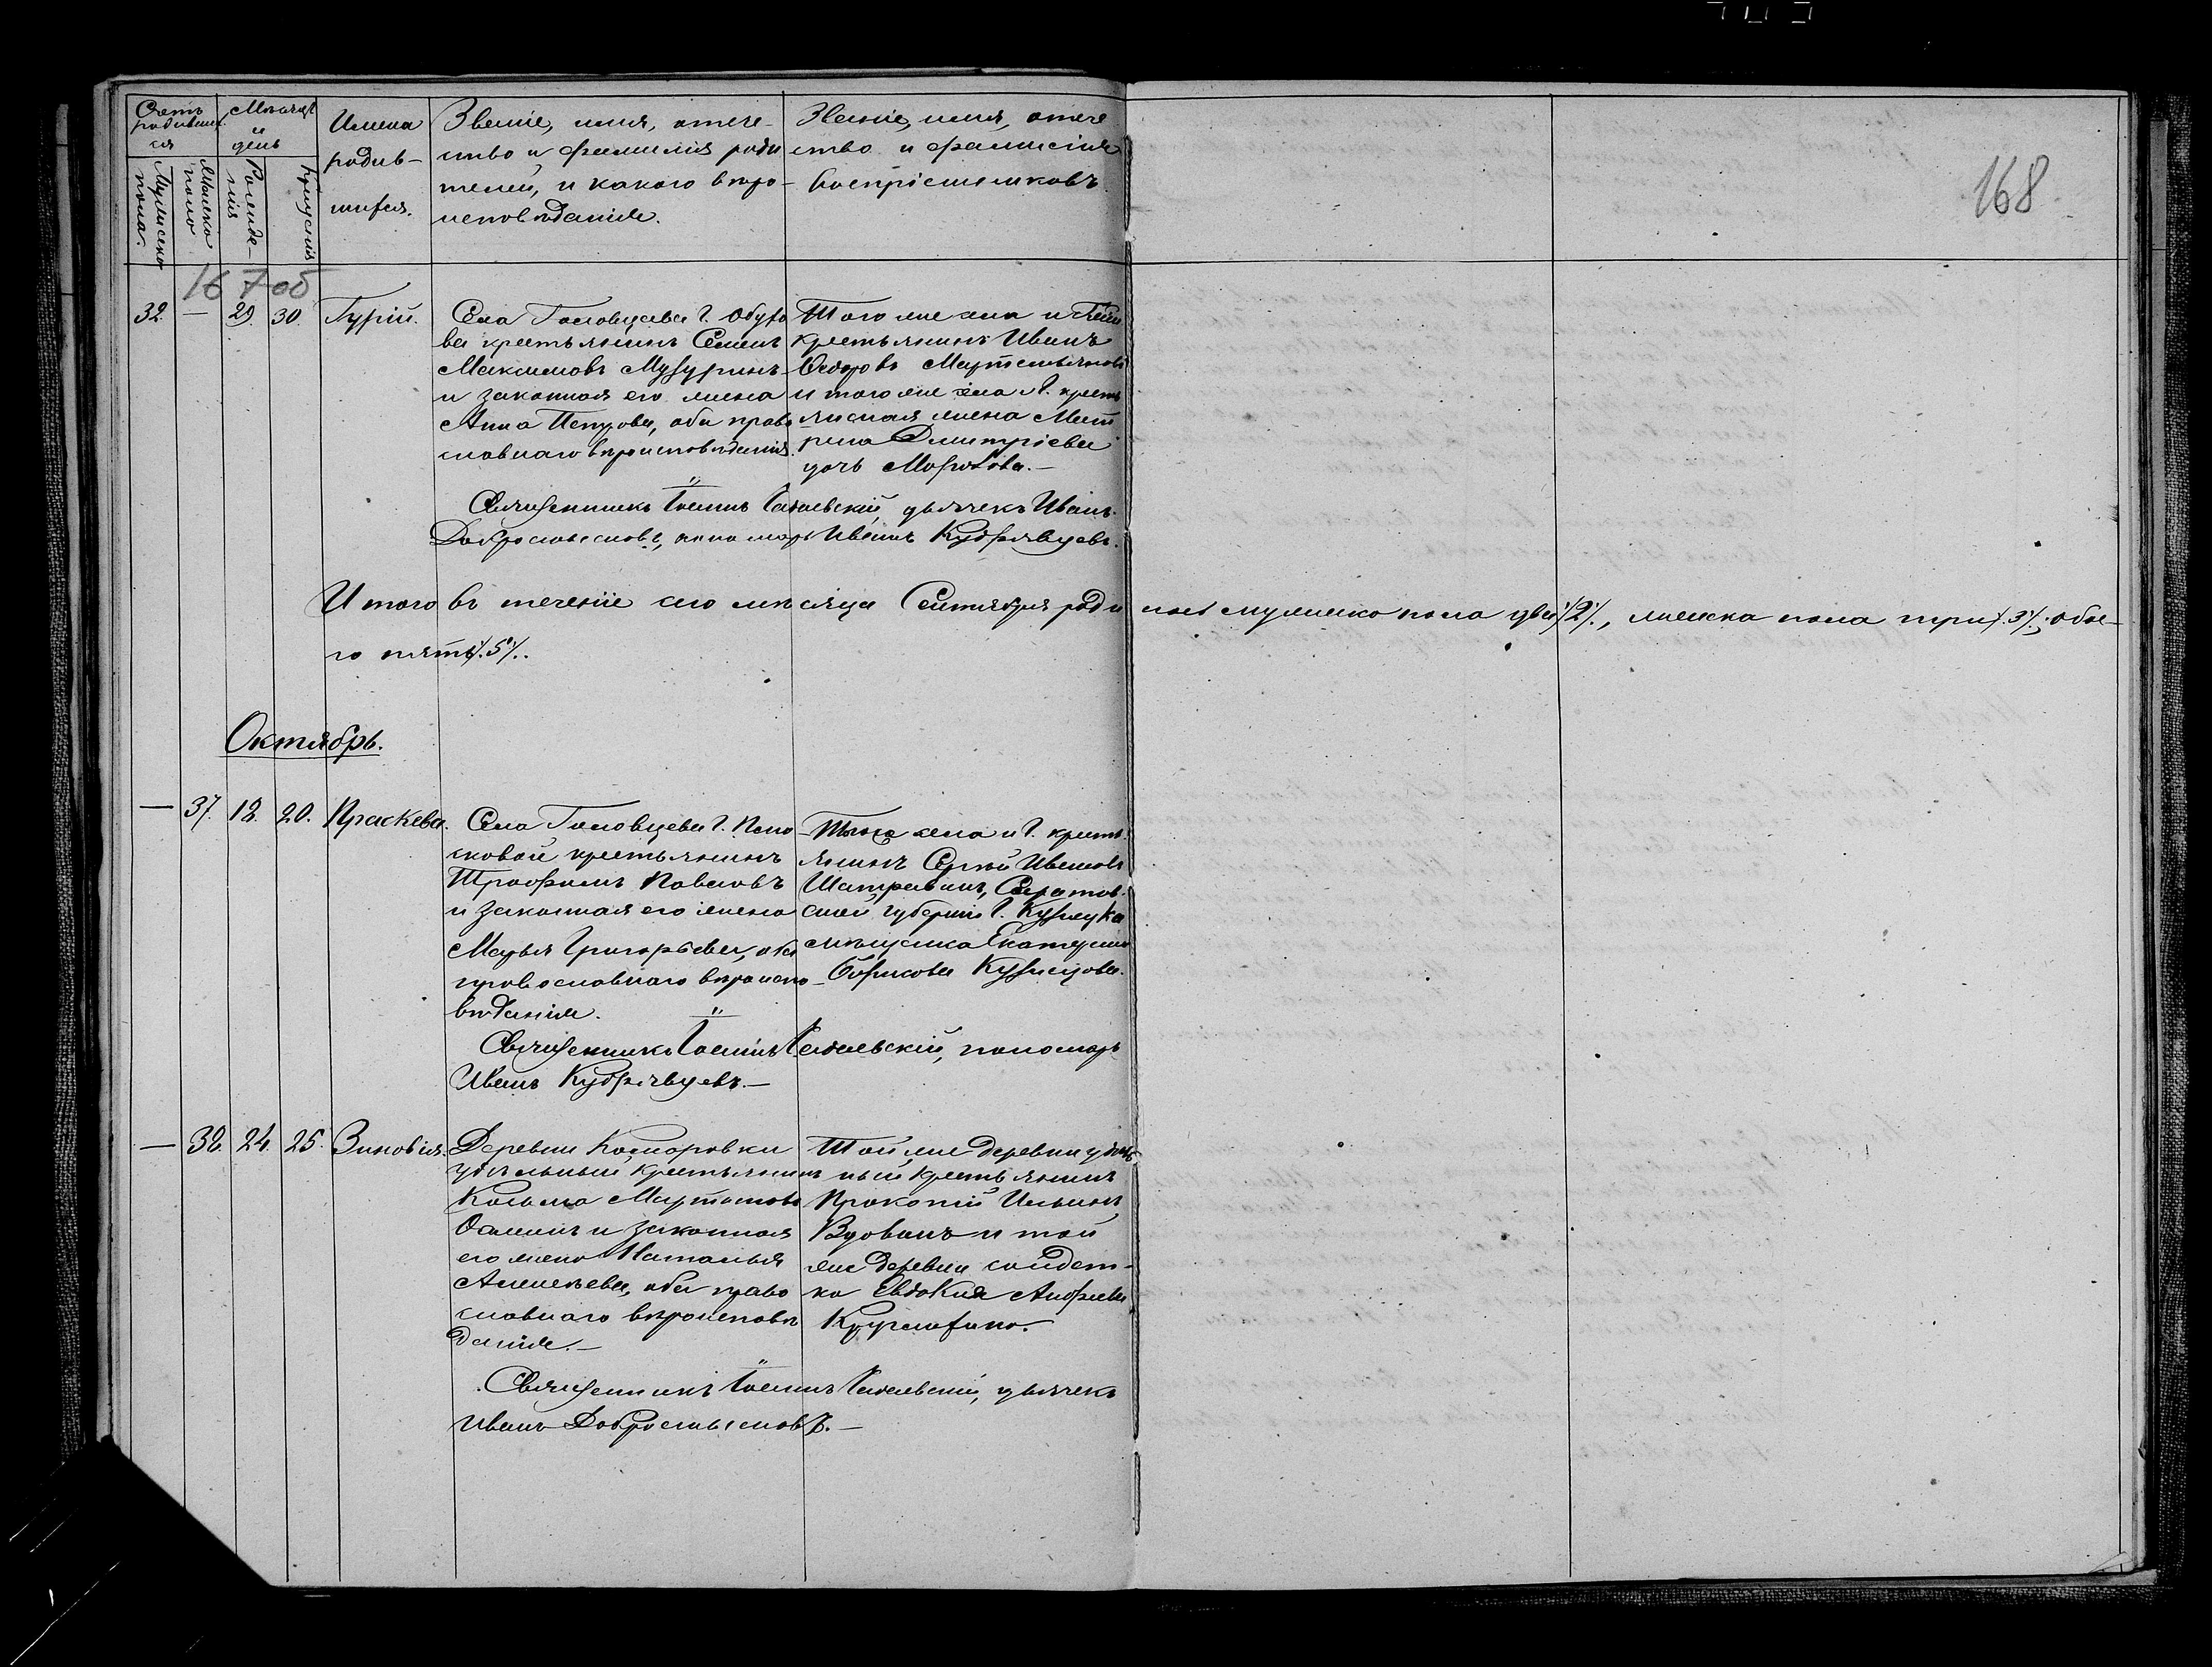 168
Счетъ родившихся
Мѣсяцъ и день
Имена родившихся.
Званіе, имя, отече-
ство и фамилія роди
телей, и какого вѣро-
исповѣданія.
Званіе, имя, отече
ство и фамилія
воспріемниковъ.
Мужескаго пола.
Женска пола
Рожде-
нія
Крещенія
167 об
32. — 29. 30. Гурій.
Села Головцева Г. Обухо
ва крестьянинъ Семенъ
Максимовъ Музуринъ
и законная его жена
Анна Петрова, оба право
славнаго вѣроисповѣданія.
Того же села и
крестьянинъ Иванъ
Ѳедоровъ
и того же села и Г. кресть
янская жена Мат
рена Димитріева
дочь Морозова.—
Священникъ Іоаннъ дьячекъ Иванъ
Добросмысловъ, пономарь Иванъ Кудрявцевъ.
Итого въ теченіе сего мѣсяца Сентября роди лось мужеско пола два /2/., женска пола три /.3/.; обое-
го пять /.5/.
Октябрь.
— 37. 18. 20. Праскева.
Села Головцева Г.
крестьянинъ
Трофимъ Павловъ
и законная его жена
Марья Григорьева, оба
православнаго вѣроиспо-
вѣданія.
Того села и Г. кресть
янинъ Сергѣй Ивановъ
Саратов-
ской губерніи Г. Кузнецка
мѣщанка Екатерина
Борисова Кузнецова.
Священникъ Іоаннъ пономарь
Иванъ Кудрявцевъ.—
— 38. 24. 25. Зиновія.
Деревни Комаровки
удѣльный крестьянинъ
Козьма Мартыновъ
и законная
его жена Наталья
Алексѣева, оба право
славнаго вѣроисповѣ
данія.—
Той же деревни удѣль
ный крестьянинъ
Прокопій Ильинъ
Вдовинъ и той
же деревни солдат-
ка Евдокія Андреева
Священникъ Іоаннъ дьячекъ
Иванъ Добросмысловъ.—